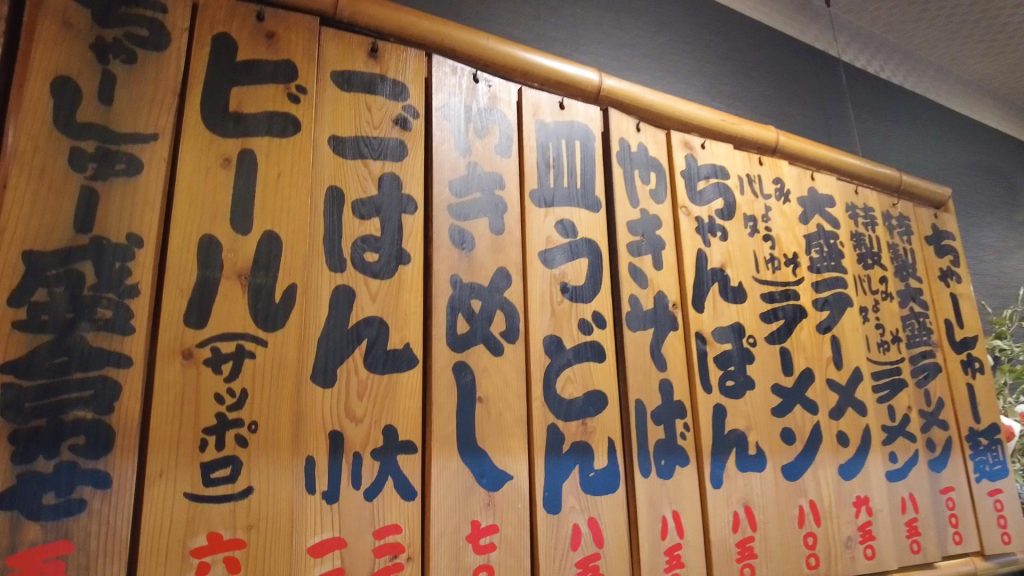 ちゃーしゅー麺
一000
特製大盛ラーメン
一000
特製
みそ
しょうゆ
バター
ラーメン
八五0
大盛ラーメン
九五0
みそ
しょうゆ
バター
ラーメン
八00
ちゃんぽん
八五0
やきそば
八五0
皿うどん
八五
やきめし
七0
ごはん
大
小
ビール(サッポロ)
六
ちゃーしゅー盛合わせ